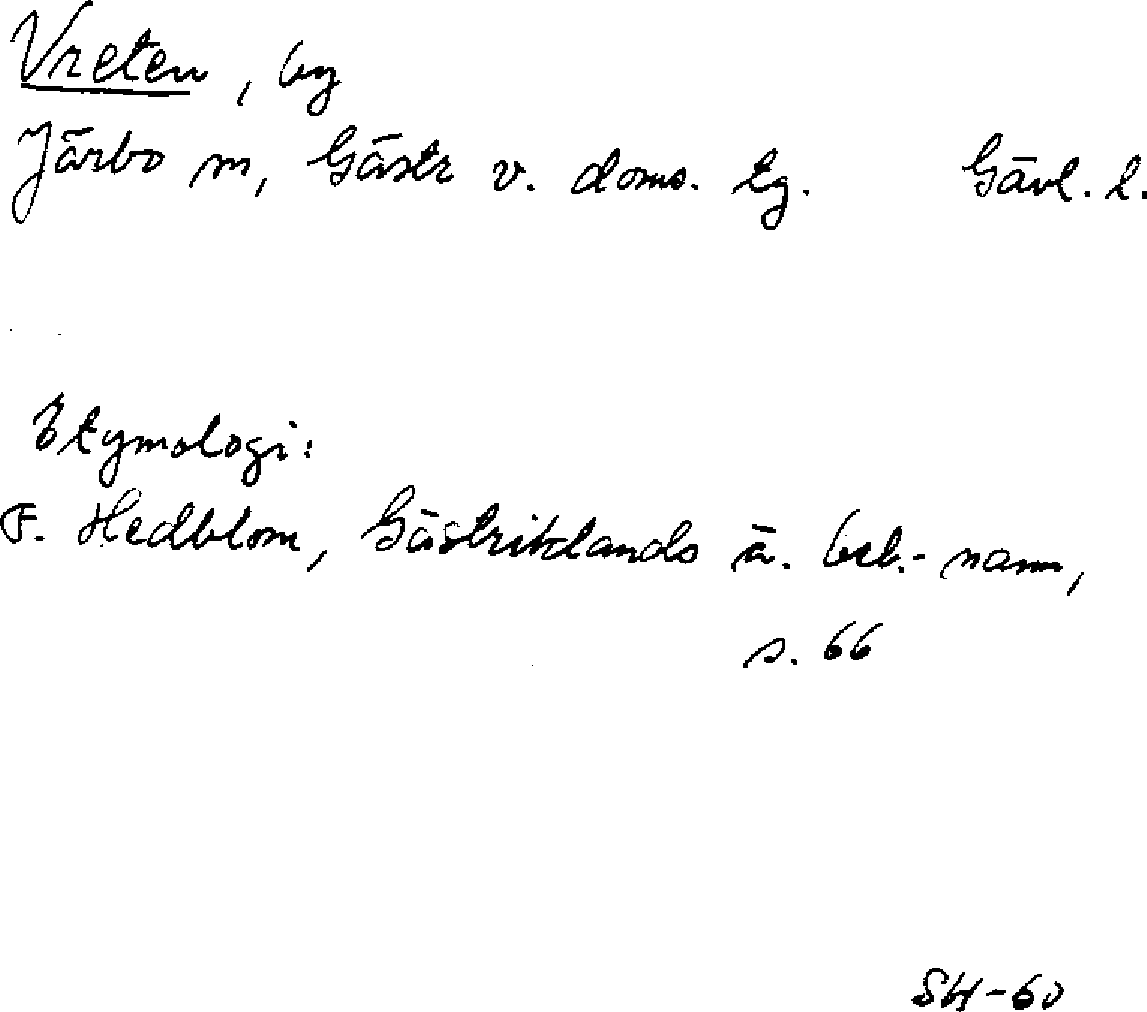 Vreten, by
Järbo sn, Gästr v. doms. tg. Gävl. l.
Etymologi:
F. Hedblom, Gästriklands ä. beb.-namn,
s. 66
SH-60